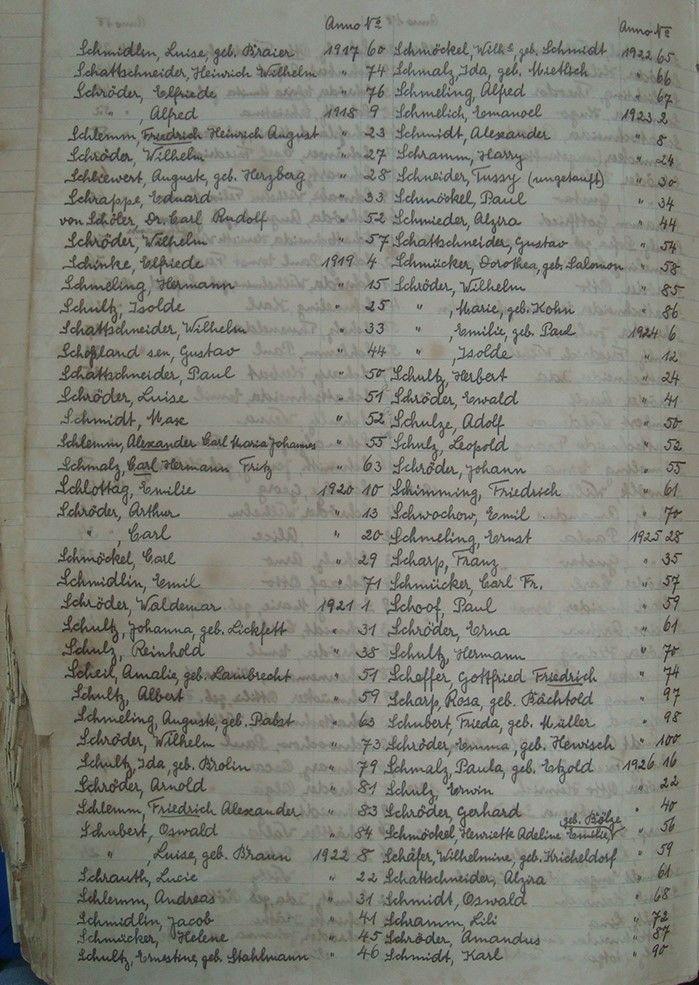 Anno No
Schmidlin, Luise, geb. Braier 1917 60
Schattschneider, Heinrich Wilhelm " 74
Schröder, Elfriede " 76
" , Alfred 1918 9
Schlemm, Friedrich Heinrich August " 23
Schröder, Wilhelm " 27
Schliewert, Auguste, geb. Herzberg " 28
Schrappe, Eduard " 33
von Schöler, Dr. Carl Rudolf " 52
Schröder, Wilhelm " 57
Schinke, Elfriede 1919 4
Schmeling, Hermann " 15
Schultz, Isolde " 25
Schattschneider, Wilhelm " 33
sen, Gustav " 44
Schattschneider, Paul " 50
Schröder, Luise " 51
Schmidt, Max " 52
Schlemm, Alexander Carl Maria Johannes " 55
Schmalz, Carl Hermann Fritz " 63
Schlottag, Emilie 1920 10
Schröder, Arthur " 13
" , Carl " 20
Schmöckel, Carl " 29
Schmidlin, Emil " 71
Schröder, Waldemar 1921 1
Schultz, Johanna, geb. Lickfett " 31
Schulz, Reinhold " 38
Scheil, Amalie, geb. Lambrecht " 51
Schultz, Albert " 59
Schmeling, Auguste, geb. Pabst " 63
Schröder, Wilhelm " 73
Schultz, Ida, geb. Brolin " 79
Schröder, Arnold " 81
Schlemm, Friedrich Alexander " 83
Schubert, Oswald " 84
" , Luise, geb. Braun 1922 8
Schrauth, Lucie " 22
Schlemm, Andreas " 31
Schmidlin, Jacob " 41
Schmücker, Helene " 45
Schultz, Ernestine, geb. Stahlmann " 46
Anno No
Schmöckel, geb. Schmidt 1922 65
Schmalz, Ida, geb. " 66
Schmeling, Alfred " 67
Schmelich, Emanoel 1923 2
Schmidt, Alexander " 8
Schramm, Harry " 24
Schneider, Tussy (ungetauft) " 30
Schmöckel, Paul " 34
Schmieder, Alzira " 44
Schattschneider, Gustav " 54
Schmücker, Dorothea, geb. Salomon " 58
Schröder, Wilhelm " 85
" , Marie, geb. Kohn " 86
" , Emilie, geb. Paul 1924 6
" , Isolde " 12
Schultz, Herbert " 24
Schröder, Ewald " 41
Schulze, Adolf " 50
Schulz, Leopold " 52
Schröder, Johann " 55
Schimming, Friedrich " 61
Schwochow, Emil " 70
Schmeling, Ernst 1925 28
Scharp, Franz " 35
Schmücker, Carl Fr. " 57
Schoof, Paul " 59
Schröder, Erna " 61
Schultz, Hermann " 70
Scheffer, Gottfried Friedrich " 74
Scharp, Rosa, geb. Bächtold " 97
Schubert, Frieda, geb. Müller " 98
Schröder, Emma, geb. Henrisch " 100
Schmalz, Paula, geb. Etzold 1926 16
Schulz, Erwin " 22
Schröder, Gerhard " 40
Schmöckel, Henriette Adeline Emilie, geb. Bölze " 56
Schäfer, Wilhelmine, geb. Kricheldorf " 59
Schattschneider, Alzira " 61
Schmidt, Oswald " 68
Schramm, Lili " 72
Schröder, Amandus " 87
Schmidt, Karl " 90